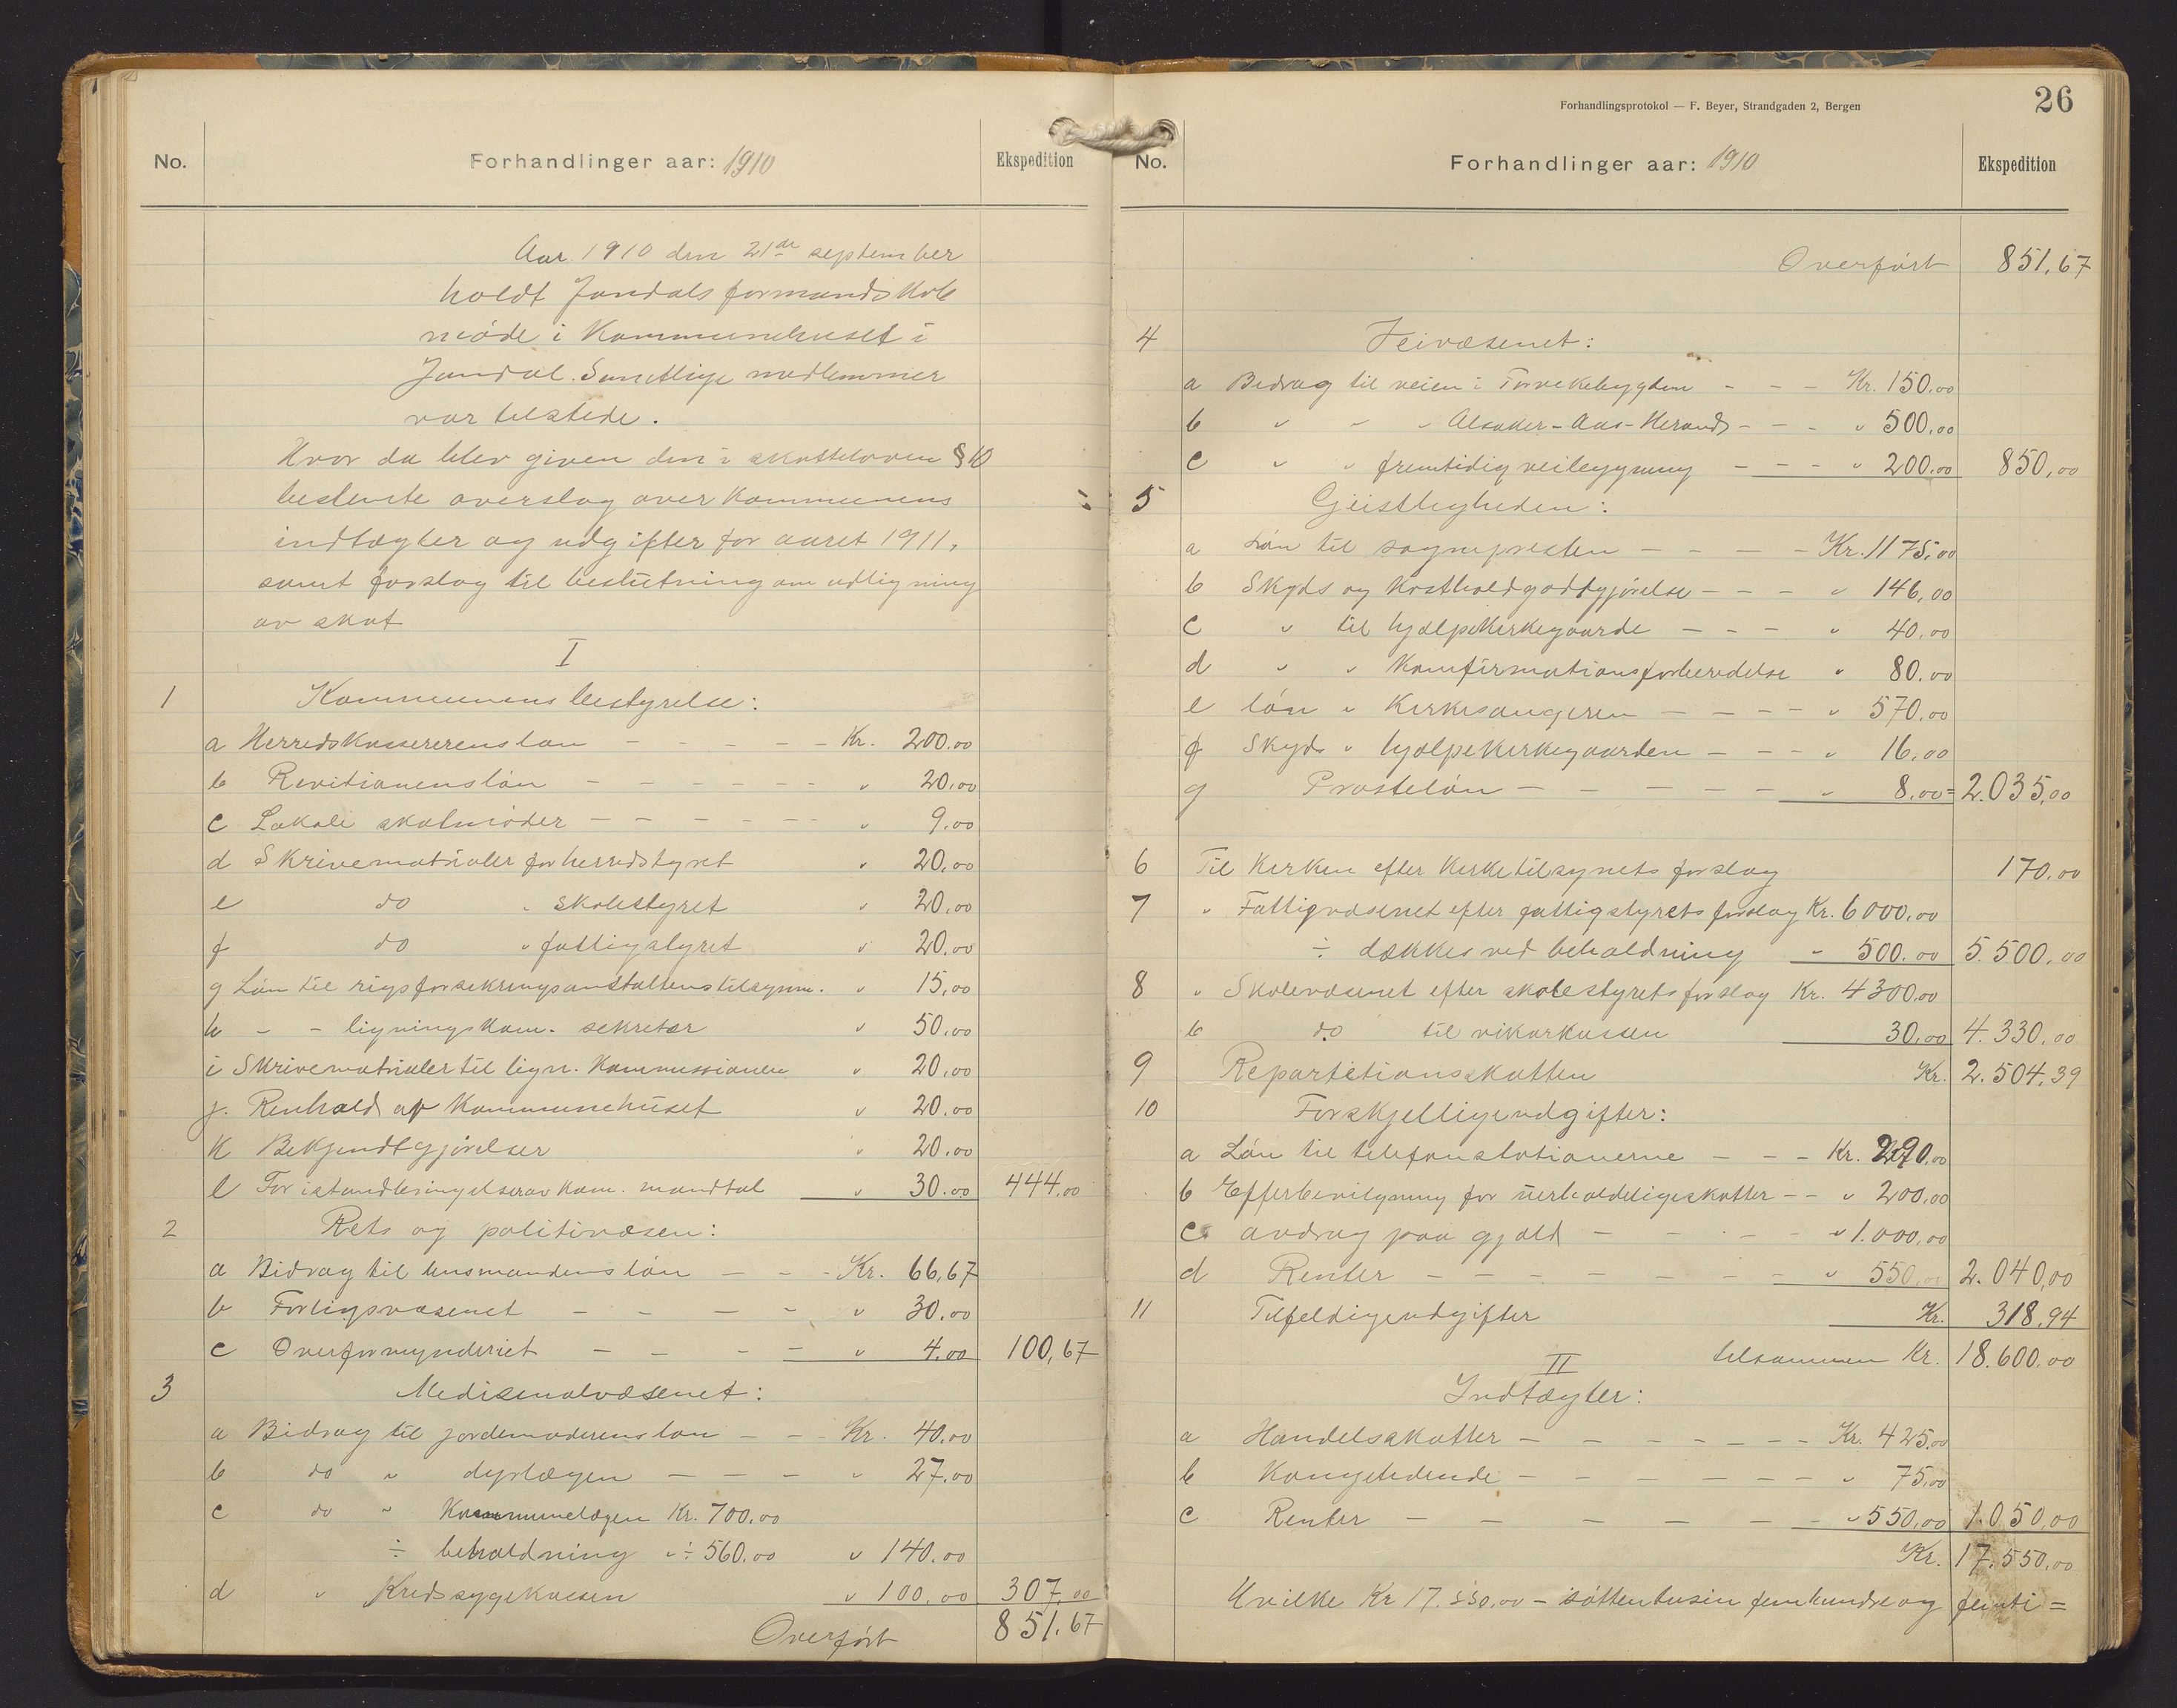 No. Forhandlinger aar: 1910 Ekspedition
Aar 1910 den 21de september
holdt Jondals formandskab
møde i Kommunehuset i
Jondal. Samtlige medlemmer
var tilstede.
Hvor da blev given den i skatteloven § 10
bestemte overslag over kommunens
indtægter og udgifter for aaret 1911,
samt forslag til beslutning om udligning
av skat
I
1 Kommunens bestyrelse:
a Herredskassererens løn - - - - - Kr. 200.00
b Revitionens løn - - - - - - " 20.00
c Lokale skatmøder - - - - - - " 9.00
d Skrivematrialer for herredstyret " 20.00
e do " skolestyret " 20.00
f do " fattigstyret " 20.00
g Løn til rigsforsekringsanstaltens tilsynm. " 15,00
h - - ligningskom. sekretær " 50.00
i Skrivematrialer til lign. Kommissionen " 20.00
j. Renhold af Kommunehuset " 20.00
k Bekjendtgjørelser " 20.00
l For istandbringelser av kom. mandtal " 30.00 444.00
2 Rets og politivæsen:
a Bidrag til lensmandens løn - - - Kr. 66,67
b Forligsvæsenet - - - - " 30.00
c Overformynderiet - - - - " 4.00 100,67
3 Medisinalvæsenet:
a Bidrag til jordemoderens løn - - - Kr. 40.00
b do " dyrlægen - - - " 27.00
c do " Kommunelægen Kr. 700.00
÷ beholdning " ÷ 560.00 " 140.00
d " Kredssygekassen " 100.00 307.00
Overført 851.67
Forhandlingsprotokol — F. Beyer, Strandgaden 2, Bergen
26
No. Forhandlinger aar: 1910 Ekspedition
Overført 851,67
4 Veivæsenet:
a Bidrag til veien i Torvikebygden - - - Kr. 150.00
b " " " Alsaker-Aas-Herands - - - " 500.00
c " " fremtidig veibygning - - - - " 200.00 850,00
5 Geistligheden:
a Løn til sognepresten - - - - - Kr. 1175,00
b Skyds og Kostholdgodtgjørelse - - - " 146,00
c " til hjælpekirkegaarde - - - " 40,00
d " " Konfirmationsforberedelse " 80.00
e løn " Kirkesangeren - - - - " 570,00
f Skyds " hjælpekirkegaarden - - - " 16,00
g Prosteløn - - - - - - " 8.00= 2.035,00
6 Til Kirken efter Kirketilsynets forslag 170.00
7 " Fattigvæsenet efter fattigstyrets forslag Kr. 6000,00
÷ dækkes ved beholdning - 500.00 5.500,00
8 " Skolevæsenet efter skolestyrets forslag Kr. 4300.00
b do til vikarkassen 30,00 4.330,00
9 Repartitionsskatten Kr. 2.504,39
10 Forskjellige udgifter:
a Løn til telefonstationerne - - - Kr. 290.00
b Efterbevilgning for uerholdelige skatter - - " 200.00
c avdrag paa gjæld - - - - - " 1.000,00
d Renter - - - - - - - - " 550.00 2.040,00
11 Tilfeldige udgifter Kr. 318,94
tilsammen Kr. 18.600.00
II
Indtægter:
a Handelsskatter - - - - - - - Kr. 425.00
b Kongetiende - - - - - - - " 75,00
c Renter - - - - - - - " 550,00 1.050,00
Kr. 17.550,00
Hvilke Kr 17.550.00 - søttentusin femhundre og femti =